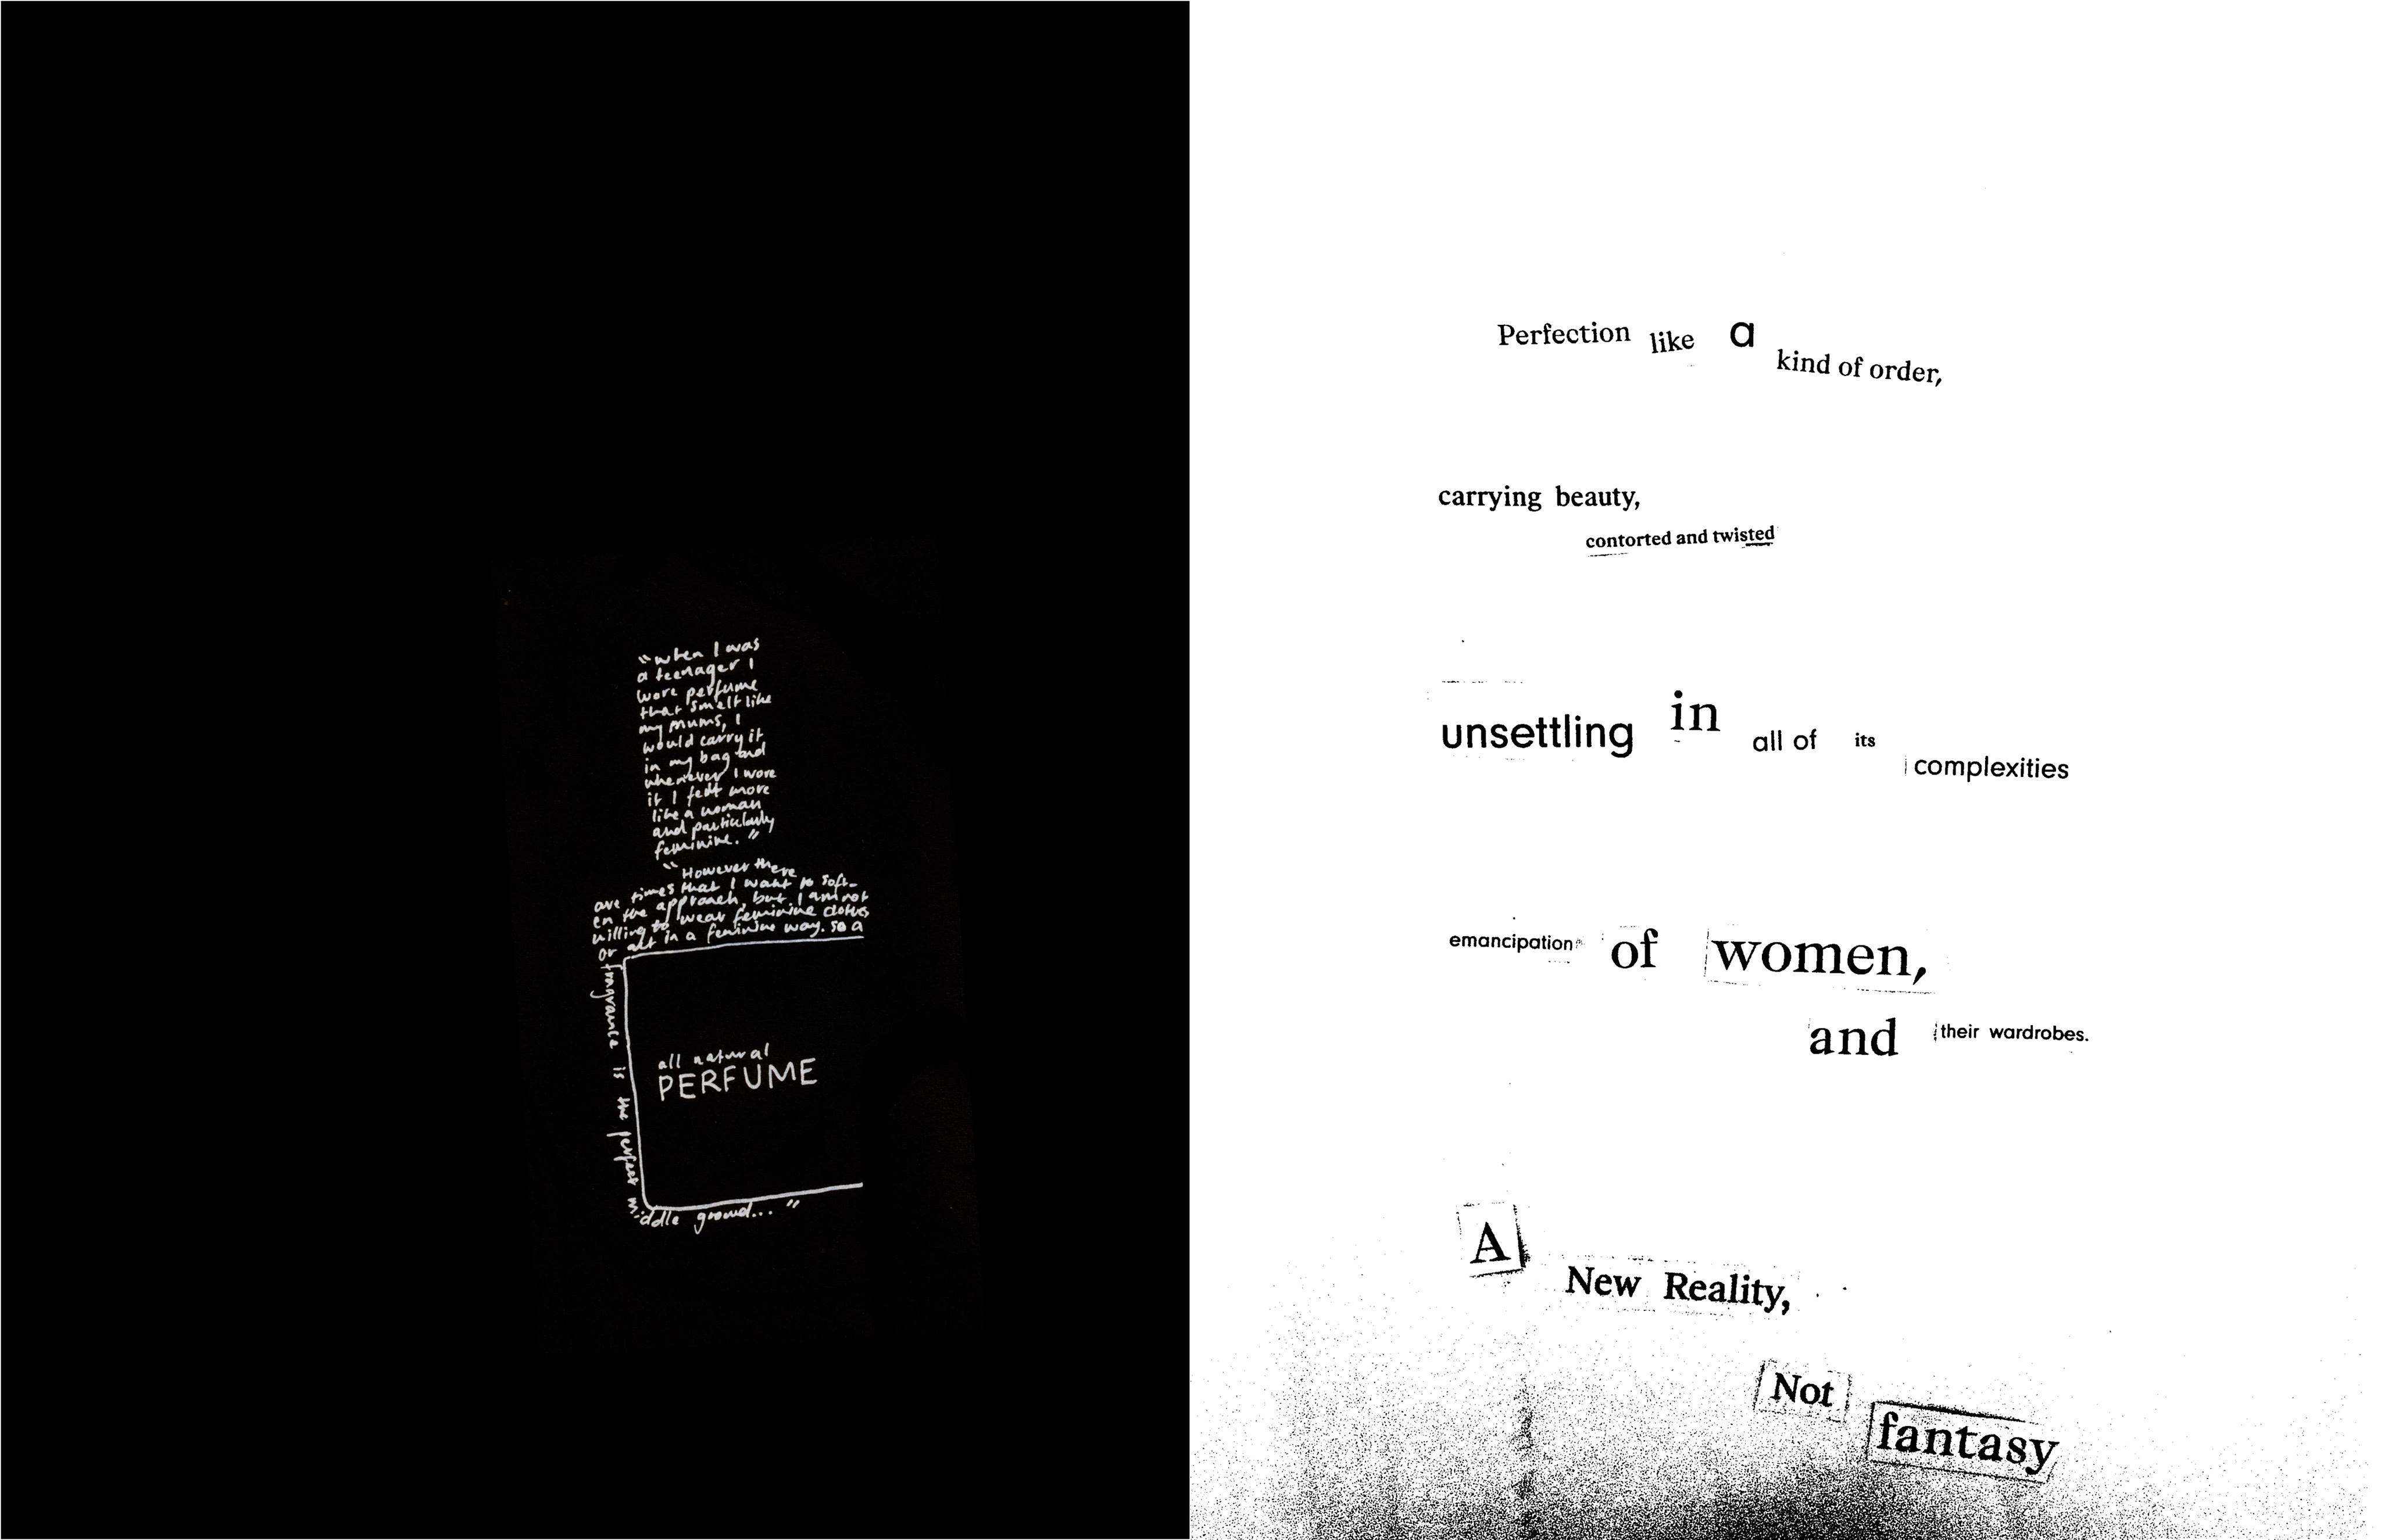 "when I was
a teenager I
wore perfume
that smelt like
my mums, I
would carry it
in my bag and
whenever I wore
it I felt more
like a woman
and particularly
feminine."
"However there
are times that I want to soft-
en the approach, but I am not
willing to wear feminine clothes
or act in a feminine way. so a
fragrance is the perfect middle ground..."
all natural
PERFUME
Perfection like a kind of order,
carrying beauty,
contorted and twisted
unsettling in all of its complexities
emancipation of women,
and their wardrobes.
A New Reality,
Not fantasy